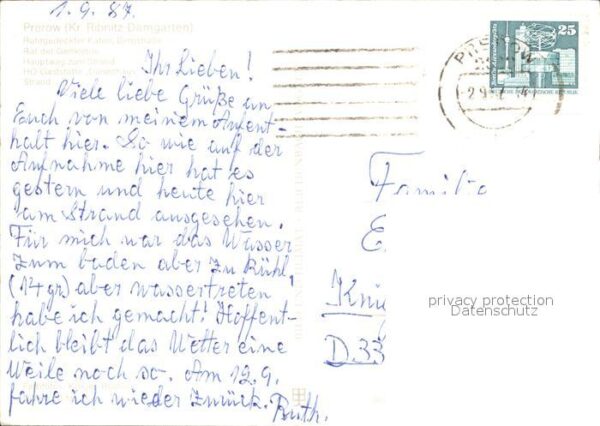 1.9.87.
Prerow (Kr. Ribnitz-Damgarten)
Rohrgedeckter Katen, Grünstraße
Rat der Gemeinde
Hauptweg zum Strand
HO-Gaststätte
Strand
Ihr Lieben!
Viele liebe Grüße an
Euch von meinem Aufent-
halt hier. So wie auf der
Aufnahme hier hat es
gestern und heute hier
am Strand ausgesehen.
Für mich war das Wasser
zum baden aber zu kühl,
(14 gr) aber wassertreten
habe ich gemacht! Hoffent-
lich bleibt das Wetter eine
Weile noch so. Am 12.9.
fahre ich wieder zurück. Ruth.
25
Familie
E
Knü
D 33
privacy protection
Datenschutz